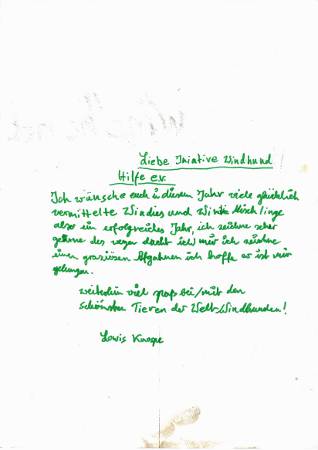 Liebe Iniative Windhund
Hilfe e.v.
Ich wünsche euch in diesem Jahr viele glücklich
vermittelte Windies und Windie Misch linge
also ein erfolgreiches Jahr, ich zeichne sehr
gerne des wegen dacht ich mir ich zeichne
einen graziösen Afghanen ich hoffe er ist mir
gelungen.
weiterhin viel spaß bei/mit den
schönsten Tieren der Welt: Windhunden!
Lewis